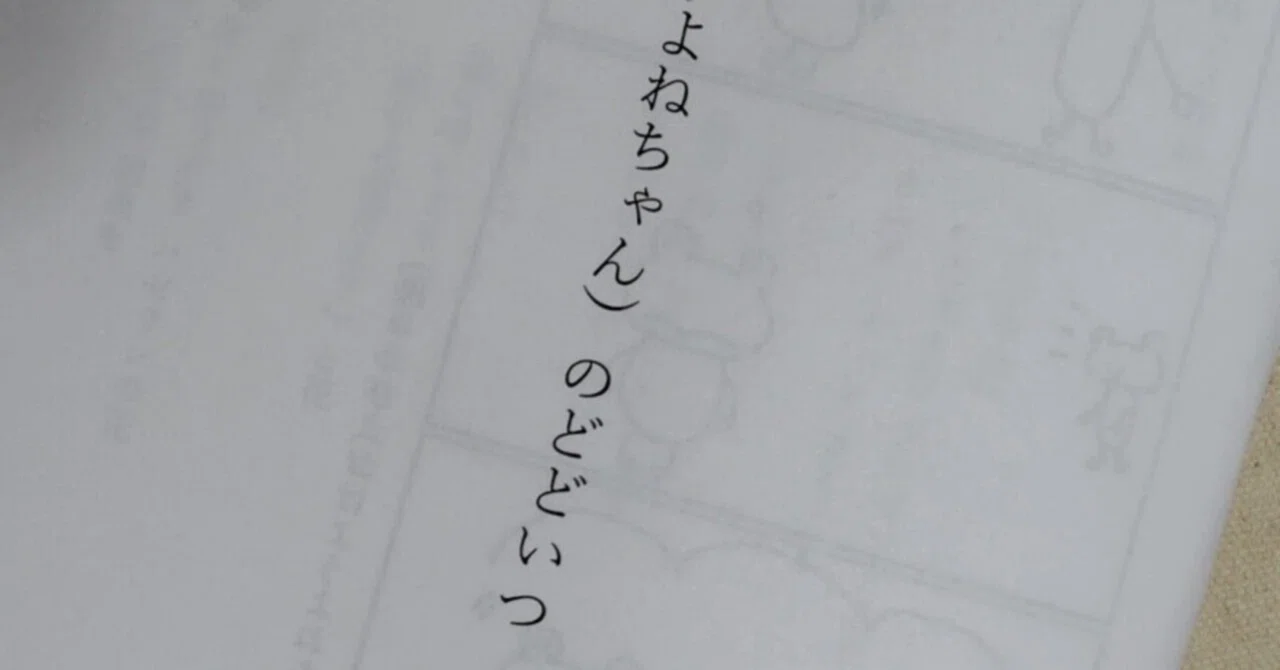 よねちゃん） のどどいつ